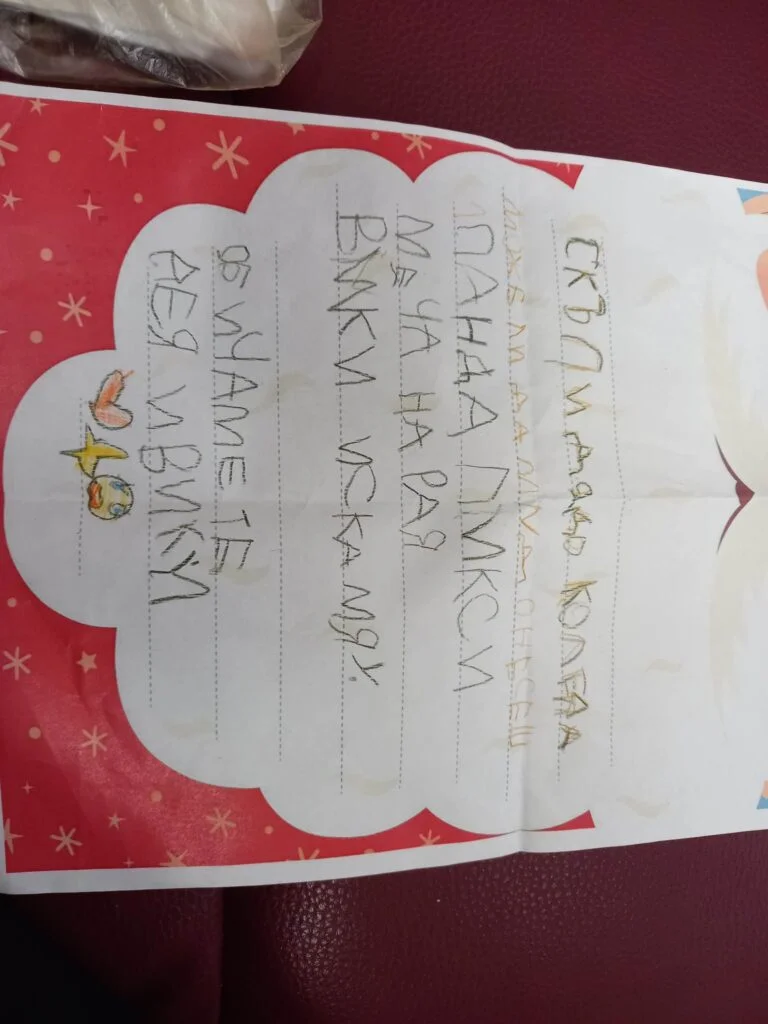 СКЪПИ ДЯДО КОЛЕДА
МОЖЕ ЛИ ДА МИ ДОНЕСЕШ
ПАНДА ПИКСИ
МЕЧА НА РАЯ
ВИКИ ИСКА МЯУ.
ОБИЧАМЕ ТЕ
ДЕЯ И ВИКИ